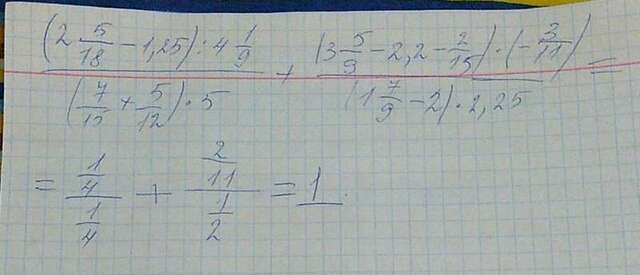 (2 5/18 - 1,25) : 4 1/9 / (7/15 + 5/12) · 5 + (3 5/9 - 2,2 - 2/15) · (-3/11) / (1 7/9 - 2) · 2,25 =
= 1/4 / 1/4 + 2/11 / 1/2 = 1